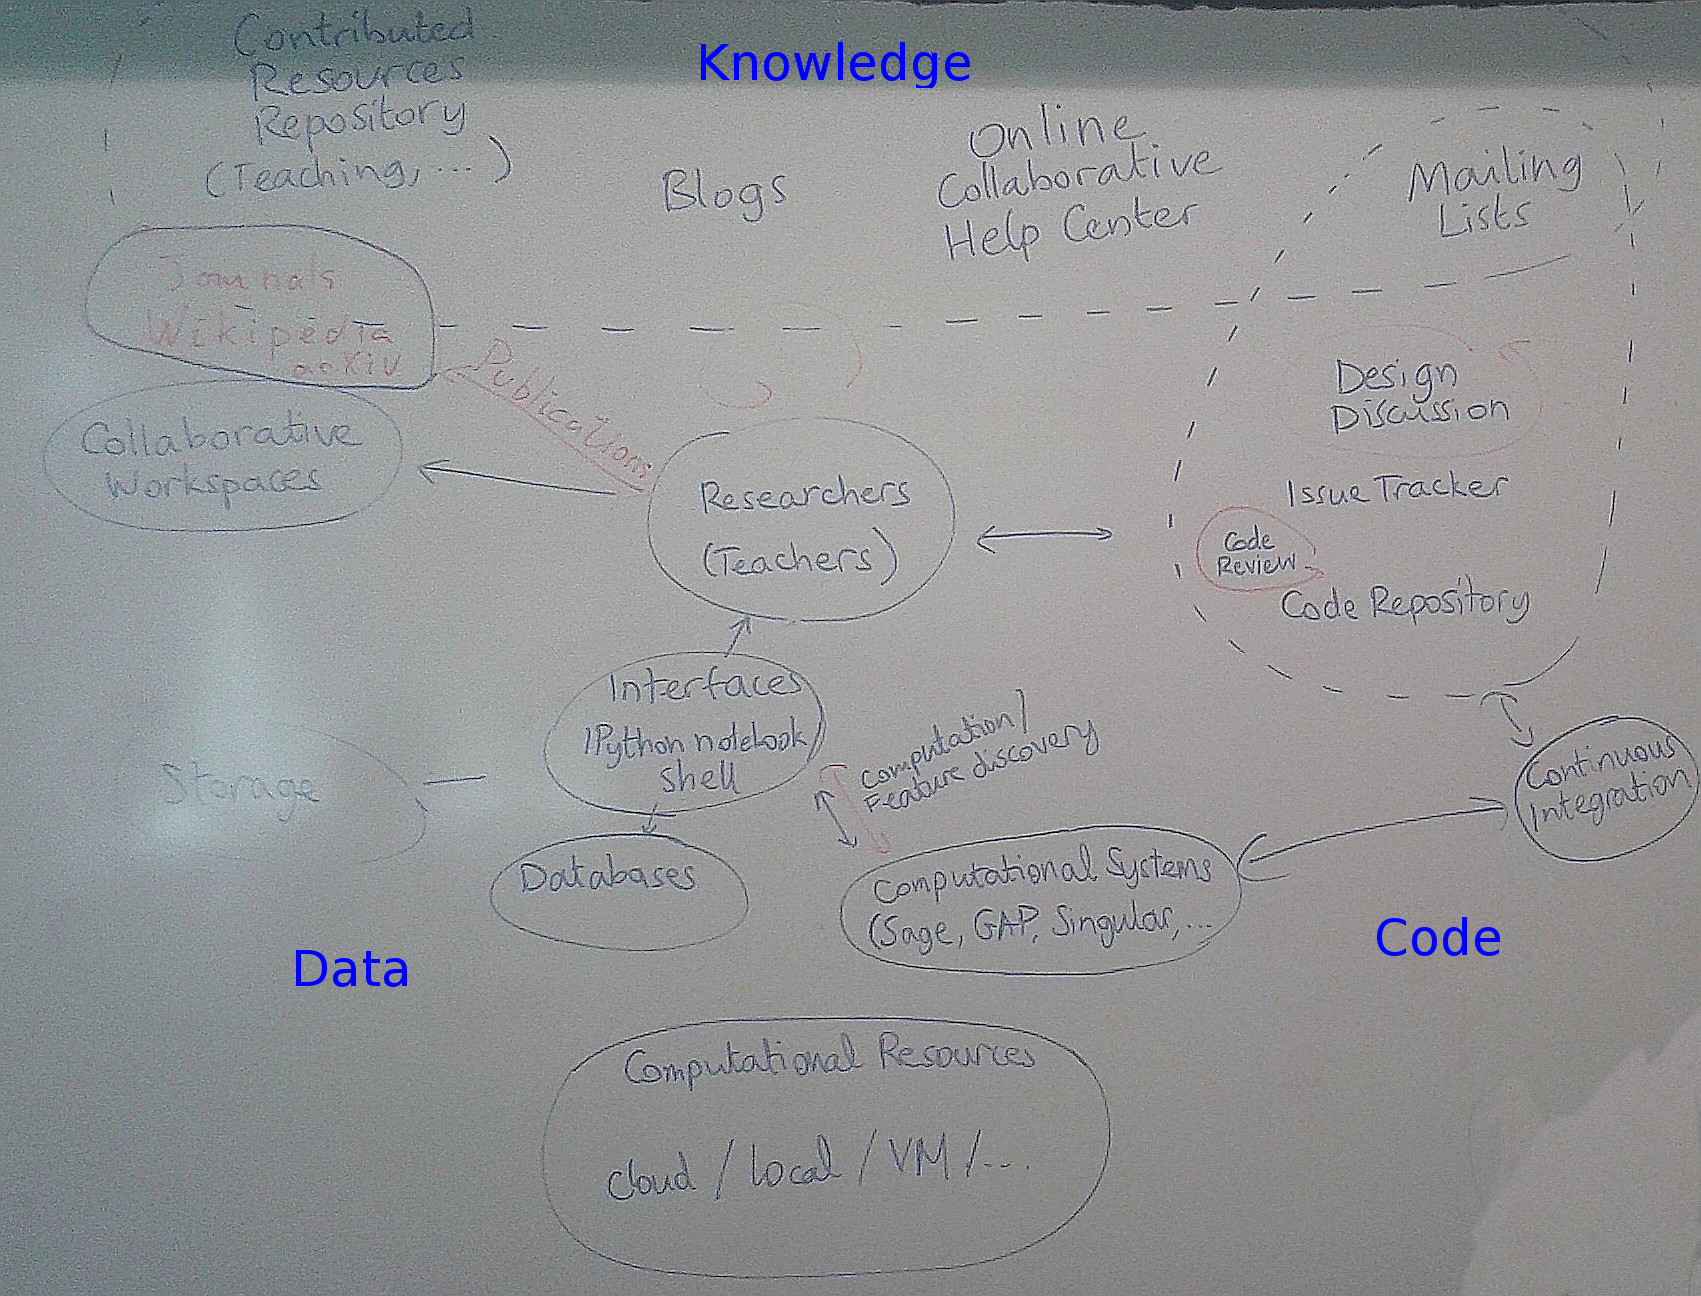 Contributed
Resources
Repository
(Teaching, ... )
Knowledge
Blogs
Online
Collaborative
Help Center
Mailing
Lists
Journals
Wikipedia
arXiv
Publications
Collaborative
Workspaces
Researchers
(Teachers)
Design
Discussion
Issue Tracker
Code
Review
Code Repository
Interfaces
IPython notebook
shell
Storage
Computation/
Feature discovery
Continuous
Integration
Databases
Computational Systems
(Sage, GAP, Singular, ...
Data
Code
Computational Resources
cloud / local / VM / ...